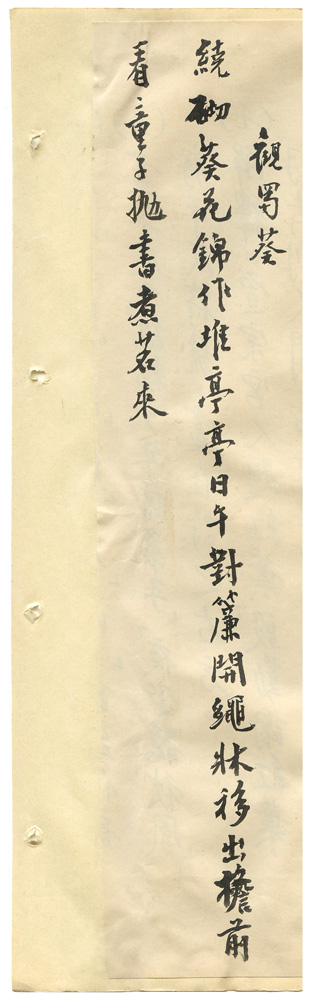 觀蜀葵
繞砌葵花錦作堆亭亭日午對簾開繩牀移出檐前
看童子拋書煮茗來